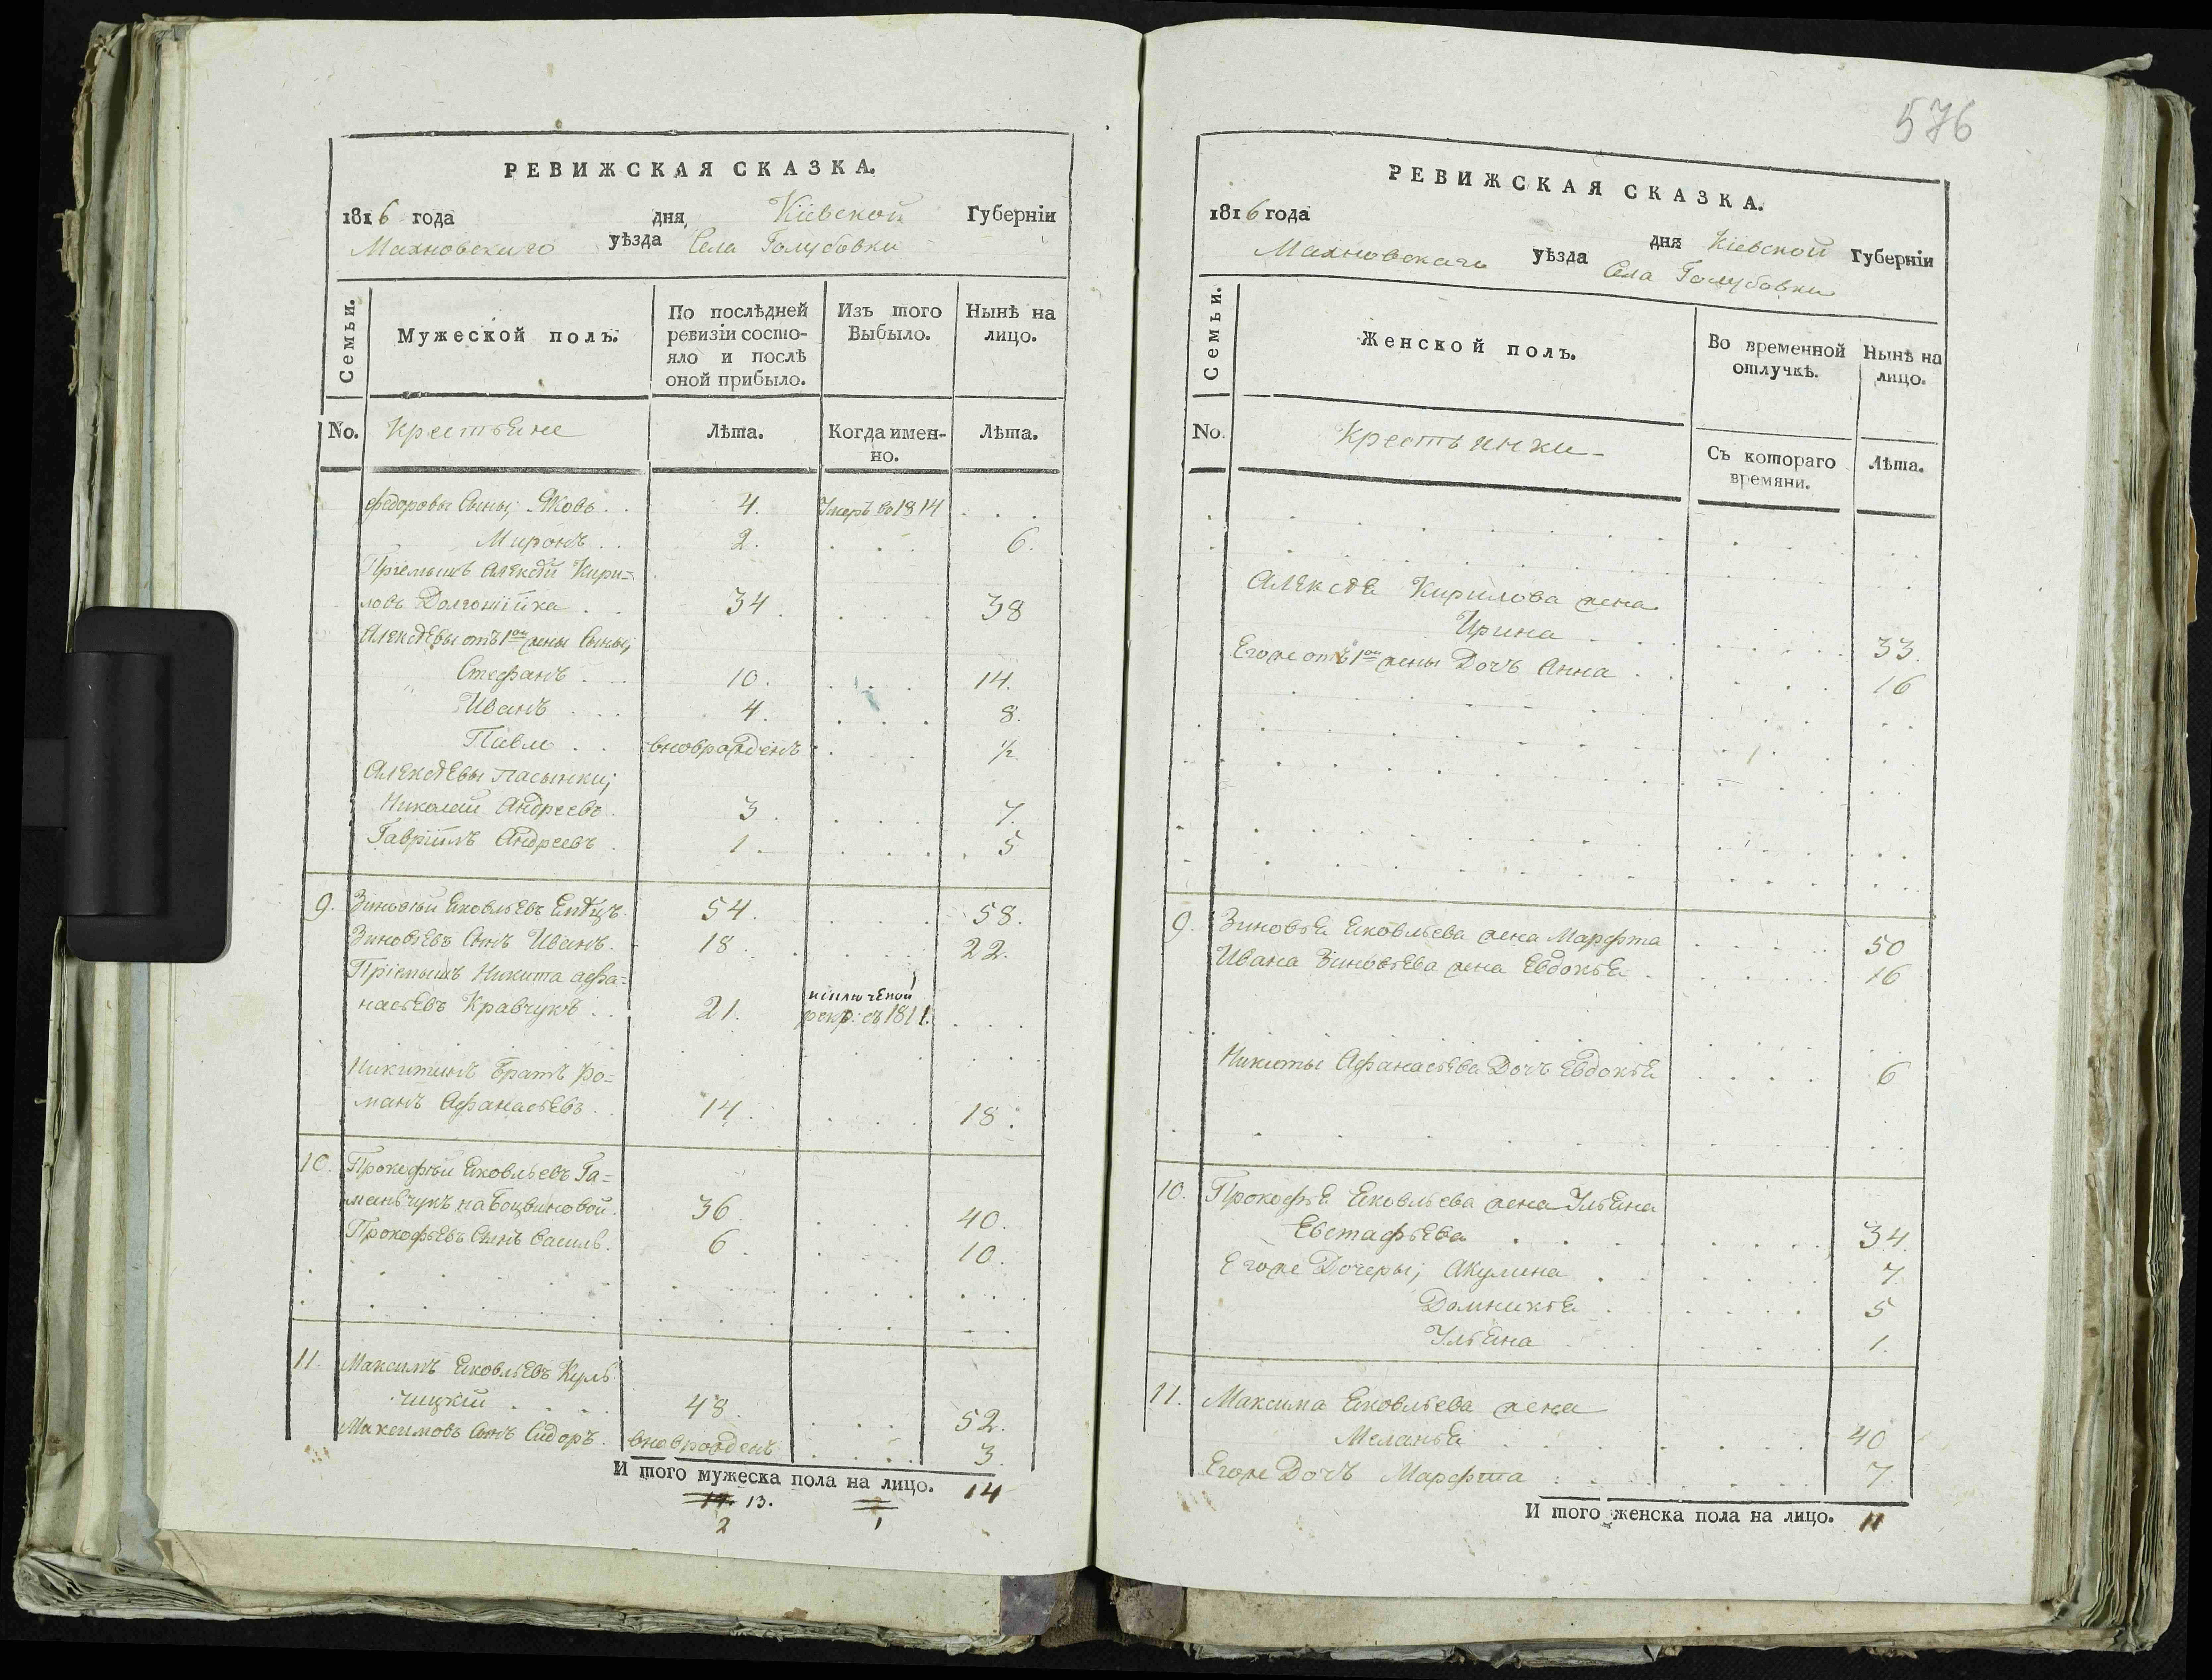 РЕВИЖСКАЯ СКАЗКА.
1816 года дня Кіевской Губерніи
Махновскаго уѣзда Села Голубовки
Семьи. Мужеской полъ. По послѣдней ревизіи состояло и послѣ оной прибыло. Изъ того Выбыло. Нынѣ на лицо.
No. Крестьяне Лѣта. Когда именно. Лѣта.
Федоровы сыны; Яковъ . . 4. Умеръ въ 1814 . . .
Миронъ . . 2. . . . 6.
Пріемышъ Алексѣй Кири=
ловъ . . 34 . . . . 38
Алексѣевы отъ 1ой жены сыны;
Стефанъ . . . 10. . . . 14.
Иванъ . . . 4. . . . . 8.
Павло . . вновьрожденъ . . . ½
Алексѣевы пасынки;
Николай Андреевъ . 3 . . . . . 7.
Гавріилъ Андреевъ . 1. . . . . . 5
9. Зиновій Яковлевъ 54. . . . . 58.
Зиновьевъ сынъ Иванъ. 18. . . . . 22.
Пріемышъ Никита Афа=
насьевъ Кравчукъ . . 21. рекр: съ 1811. . . .
Никитинъ братъ Ро=
манъ Афанасьевъ . . 14. . . . 18.
10. Прокофій Яковлевъ Га=
манчукъ 36. . . . 40.
Прокофьевъ сынъ Василь. 6. . . . 10.
11. Максимъ Яковлевъ Куль
чицкій . . . . 48. . . . 52.
Максимовъ сынъ Сидоръ. вновьрожденъ . . . . 3.
И того мужеска пола на лицо. 14
13.
2 1
576
РЕВИЖСКАЯ СКАЗКА.
1816 года дня Кіевской Губерніи
Махновскаго уѣзда Села Голубовки
Семьи. Женской полъ. Во временной отлучкѣ. Нынѣ на лицо.
No. Крестьянки- Съ котораго времяни. Лѣта.
Алексѣя Кирилова жена
Ирина . . . 33.
Его же отъ 1ой жены дочь Анна . . 16
9. Зиновья Яковлева жена Марфта . . . . 50
Ивана Зиновьева жена Евдокья . . . . 16
Никиты Афанасьева дочь Евдокья . . . . 6
10. Прокофья Яковлева жена Ульяна
Евстафьева . . . . 34.
Его же дочеры; Акулина . . . 7.
Домникья . . . 5
Ульяна . . . 1.
11. Максима Яковлева жена
Меланья . . . . 40
Его же дочь Марфта . . . . 7.
И того женска пола на лицо. 11